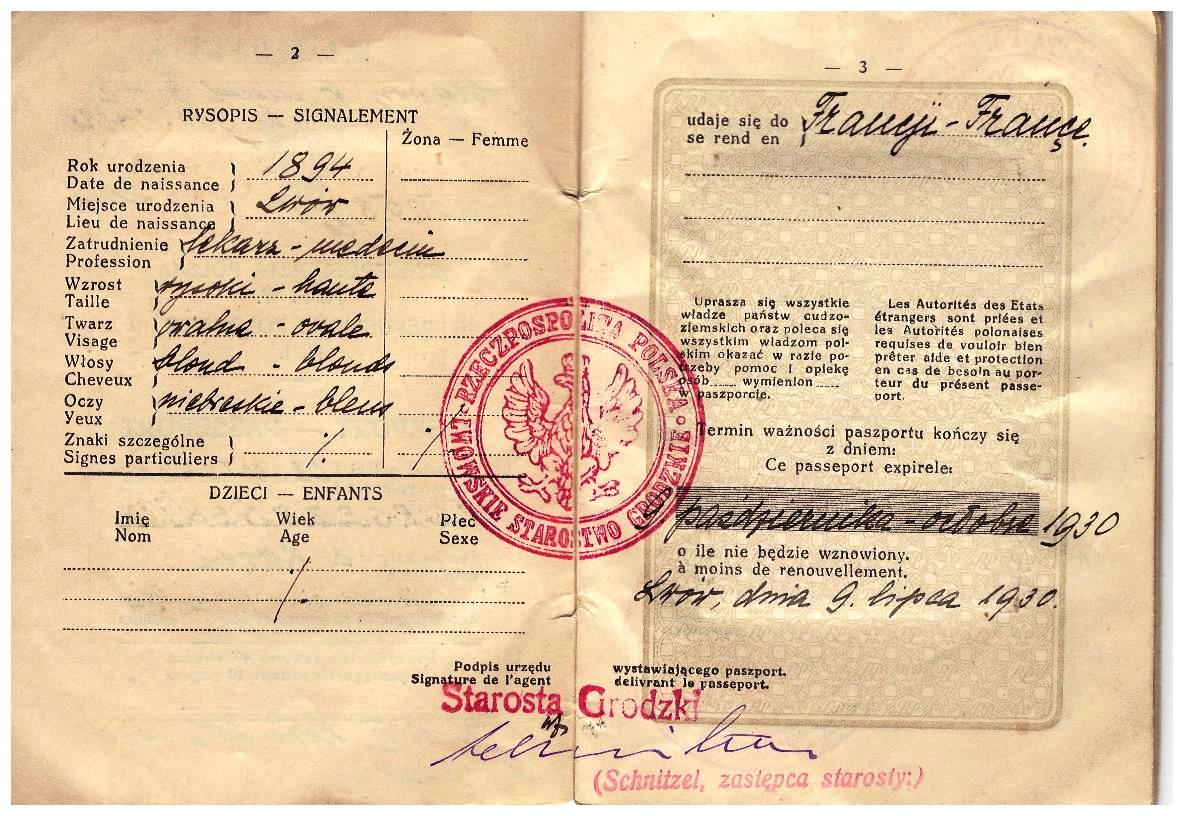 — 2 —
RYSOPIS — SIGNALEMENT
Żona — Femme
Rok urodzenia
Date de naissance
1894
Miejsce urodzenia
Lieu de naissance
Lwów
Zatrudnienie
Profession
lekarz - medecin
Wzrost
Taille
wysoki - haute
Twarz
Visage
owalna - ovale
Włosy
Cheveux
blond - blonds
Oczy
Yeux
niebieskie - bleus
Znaki szczególne
Signes particuliers
·/·
·/·
DZIECI — ENFANTS
Imię
Nom
Wiek
Age
Płeć
Sexe
·/·
Podpis urzędu
Signature de l'agent
RZECZPOSPOLITA POLSKA
LWOWSKIE STAROSTWO GRODZKIE
— 3 —
udaje się do
se rend en
Francji - France.
Uprasza się wszystkie
władze państw cudzo-
ziemskich oraz poleca się
wszystkim władzom pol-
skim okazać w razie po-
trzeby pomoc i opiekę
osób...... wymienion......
w paszporcie.
Les Autorités des Etats
étrangers sont priées et
les Autorités polonaises
requises de vouloir bien
prêter aide et protection
en cas de besoin au por-
teur du présent passe-
port.
Termin ważności paszportu kończy się
z dniem:
Ce passeport expirele:
października - octobre 1930
o ile nie będzie wznowiony.
à moins de renouvellement.
Lwów, dnia 9. lipca 1930.
wystawiającego paszport.
délivrant le passeport.
Starosta Grodzki
(Schnitzel, zastępca starosty:)